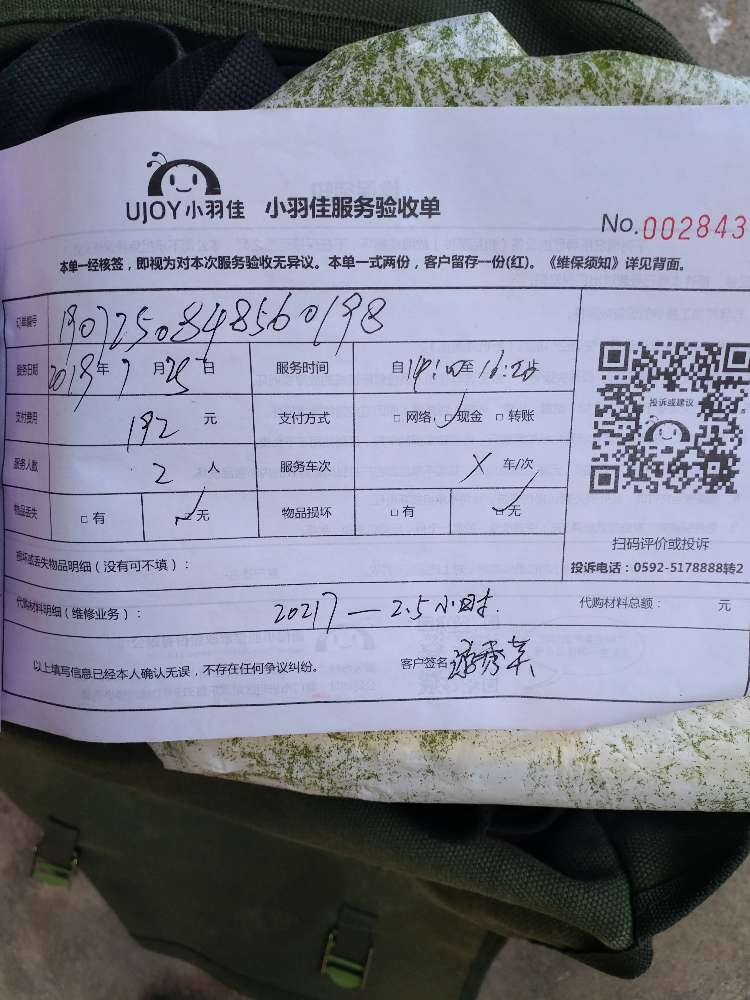 UJOY小羽佳 小羽佳服务验收单
No.002843
本单一经核签，即视为对本次服务验收无异议。本单一式两份，客户留存一份(红)。《维保须知》详见背面。
订单编号 1907250848560198
服务日期 2019年7月25日 服务时间 自14:00至16:20止
支付费用 192元 支付方式 □网络 □现金 □转账
服务人数 2人 服务车次 X 车/次
物品丢失 □有 □无 物品损坏 □有 □无
投诉或建议
扫码评价或投诉
投诉电话：0592-5178888转2
损坏或丢失物品明细（没有可不填）：
代购材料明细（维修业务）： 20217—2.5小时. 代购材料总额： 元
以上填写信息已经本人确认无误，不存在任何争议纠纷。 客户签名